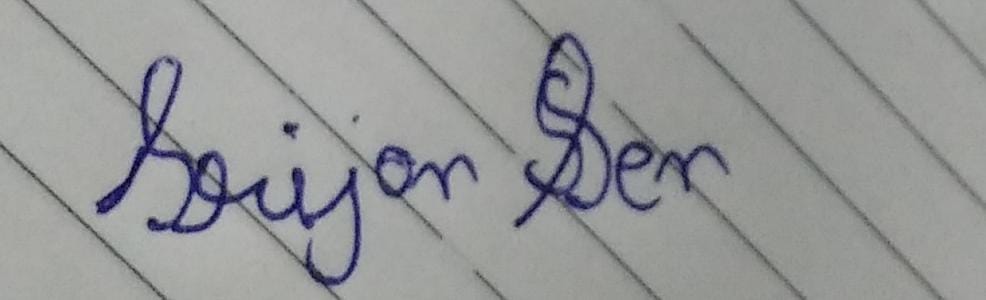 Srijan Sen